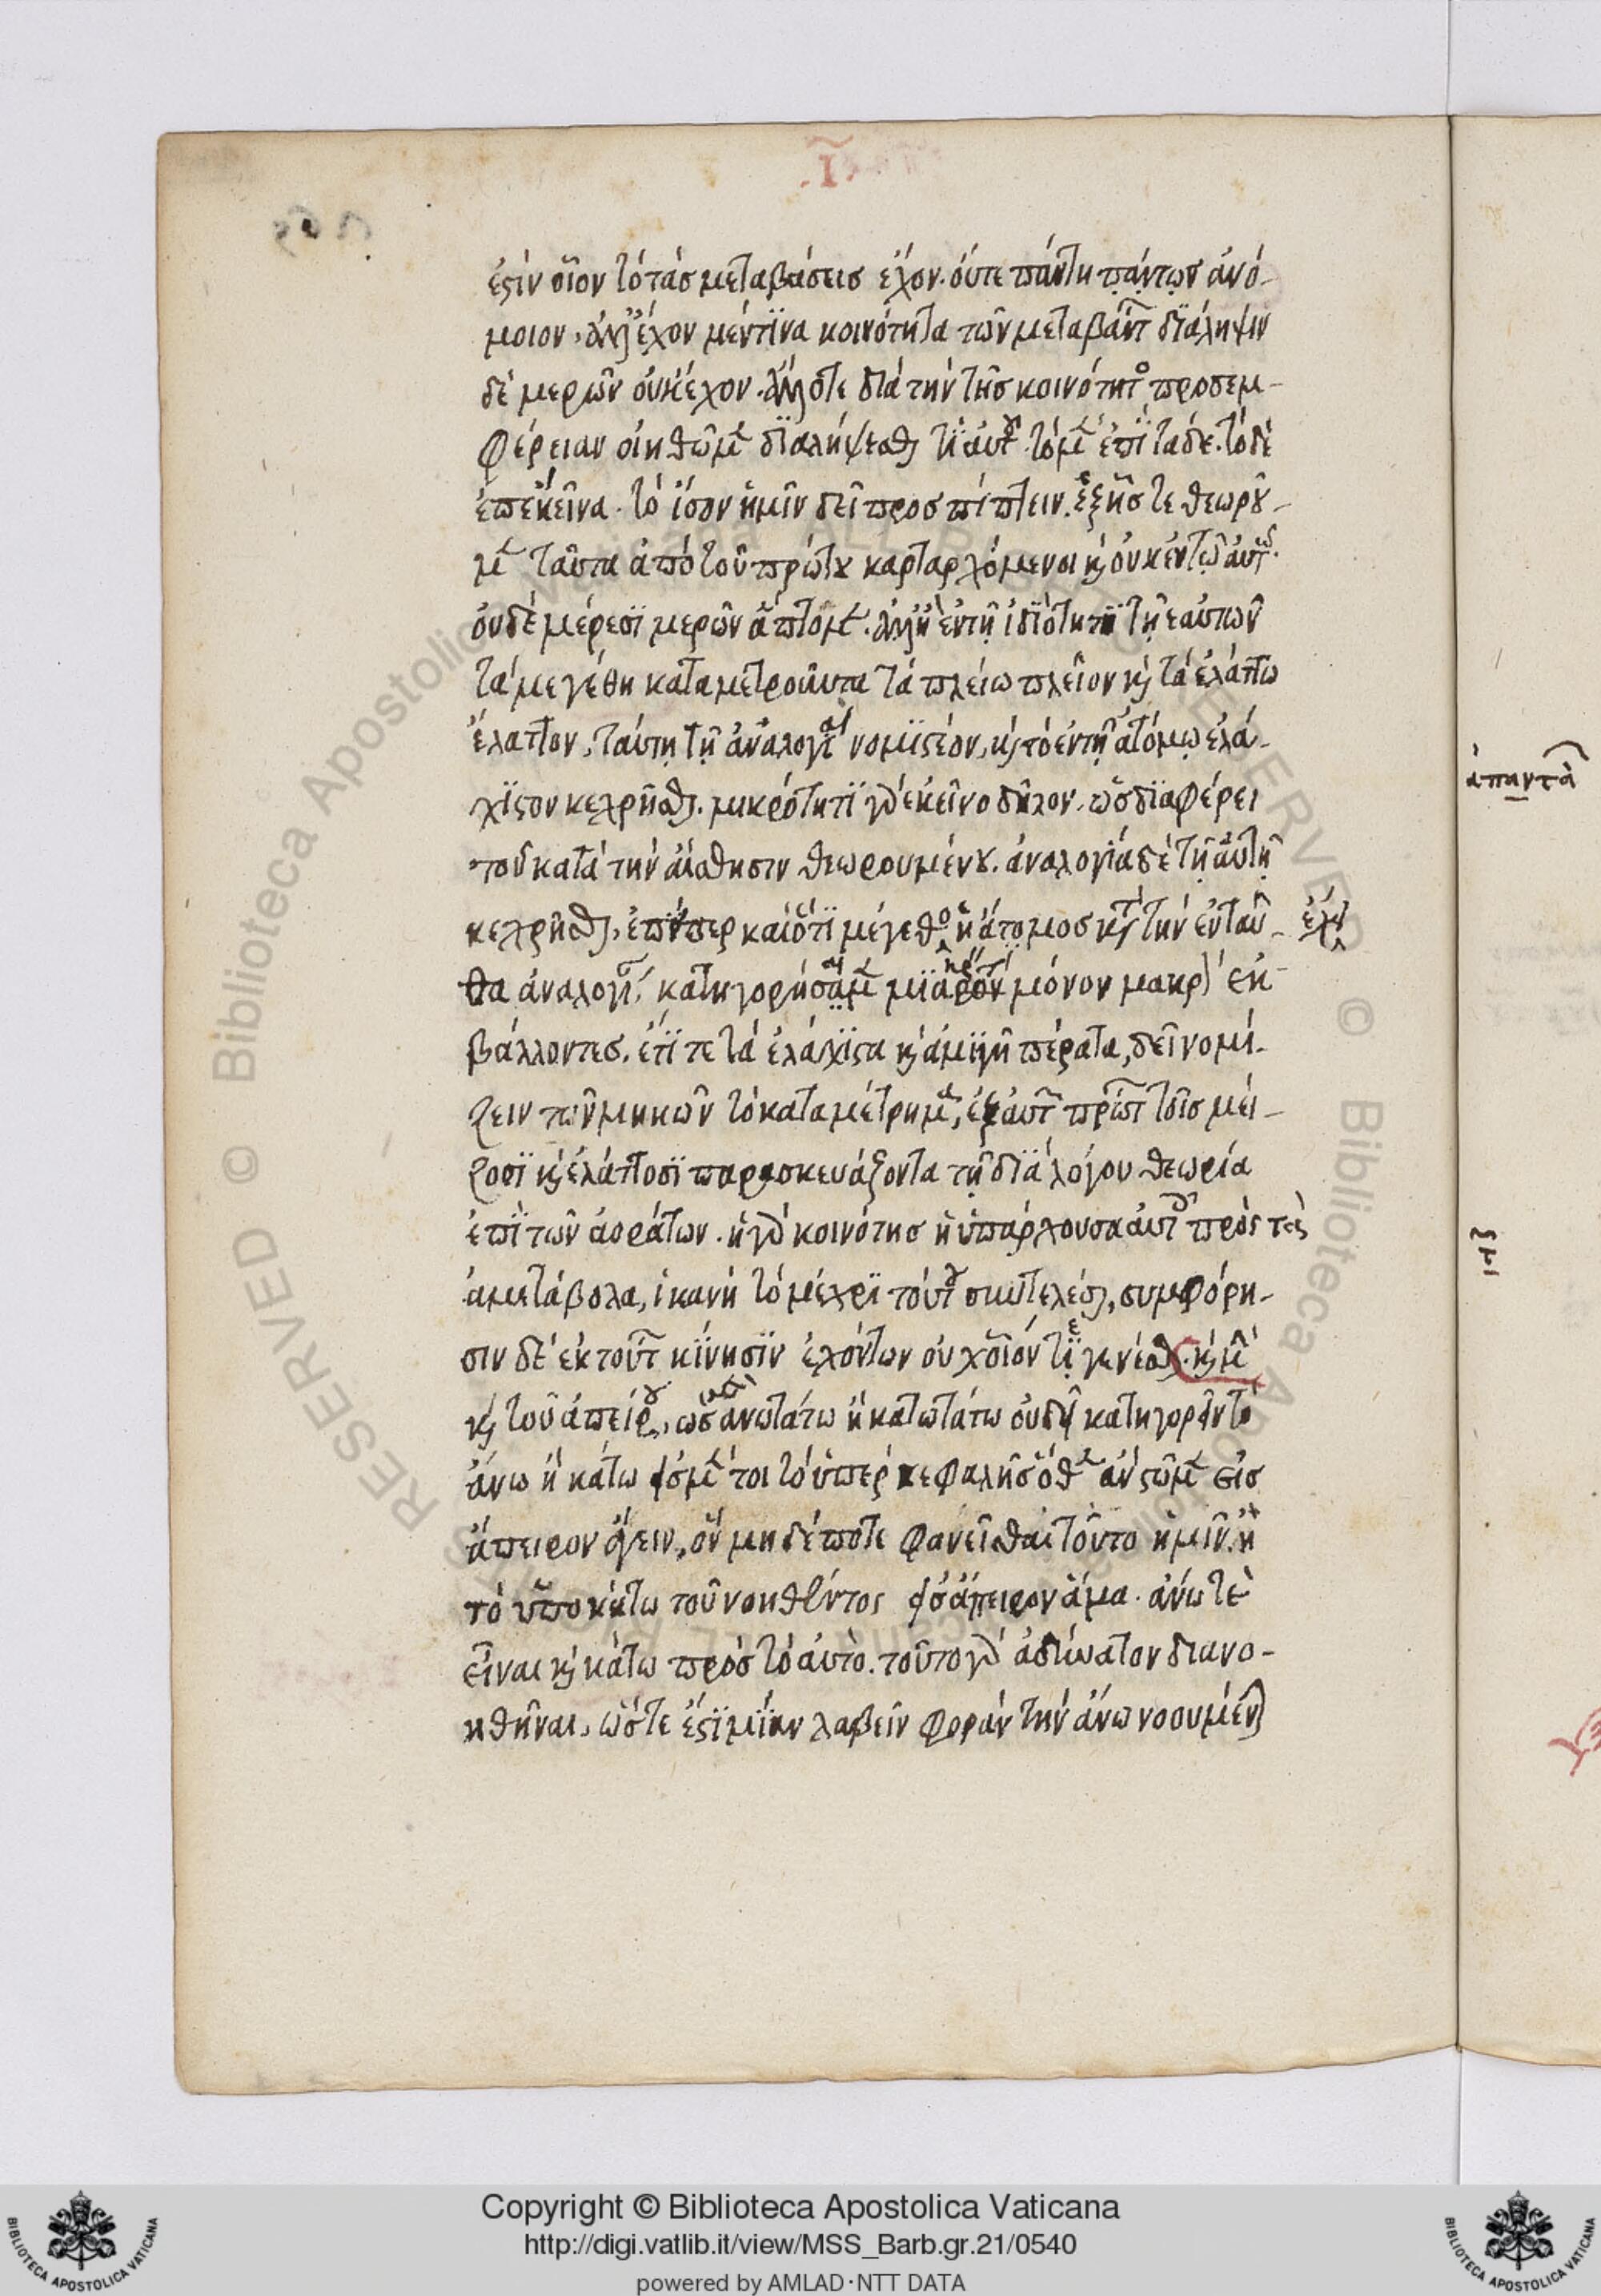 .ῑ.
ἐστὶν οἷον τὸ τὰς μεταβάσεις ἔχον. οὔτε πάντη πάντων ἀνό-
μοιον. ἀλλ' ἔχον μέν τινα κοινότητα τῶν μεταβάντ διάληψιν
δὲ μερῶν οὐκ ἔχον. ἀλλ' ὅτε διὰ τὴν τῆς κοινότητο προσεμ-
φέρειαν οἰηθῶμ διαλήψεσθαι τι αὐτ τὸ μ ἐπὶ τάδε. τὸ δὲ
ἐπέκεινα. τὸ ἴσον ἡμῖν δεῖ προσπίπτειν. ἑξῆς τε θεωροῦ-
μ ταῦτα ἀπὸ τοῦ πρώτου καταρχόμενοι καὶ οὐκ ἐν τῷ αὐτ.
οὐδὲ μέρεσι μερῶν ἁπτομ. ἀλλ' ἢ ἐν τῇ ἰδιότητι τῇ ἑαυτῶν
τὰ μεγέθη καταμετροῦντα τὰ πλείω πλεῖον καὶ τὰ ἐλάττω
ἔλαττον. ταύτη τῇ ἀναλογί νομιστέον. καὶ τὸ ἐν τῇ ἀτόμῳ ἐλά-
χιστον κεχρῆσθαι. μικρότητι γὰρ ἐκεῖνο δῆλον. ὡς διαφέρει
τοῦ κατὰ τὴν αἴσθησιν θεωρουμένου. ἀναλογία δὲ τῇ αὐτῇ
κεχρῆσθαι. ἐπείπερ καὶ ὅτι μέγεθο ἡ ἄτομος κτ τὴν ἐνταῦ- ἔχει
θα ἀναλογί κατηγορήσαμ μικρόν τι μόνον μακρ ἐκ-
βάλλοντες. ἔτι τε τὰ ἐλάχιστα καὶ ἀμιγῆ πέρατα, δεῖ νομί-
ζειν τῶν μηκῶν τὸ καταμέτρημ, ἐξ αὐτ πρώτ τοῖς μεί-
ζοσι καὶ ἐλάττοσι παρασκευάζοντα τῇ διὰ λόγου θεωρία
ἐπὶ τῶν ἀοράτων. ἡ γὰρ κοινότης ἡ ὑπάρχουσα αὐτ πρὸς τὰ
ἀμετάβολα, ἱκανὴ τὸ μέχρι τούτ συντελέσαι, συμφόρη-
σιν δὲ ἐκ τούτ κίνησιν ἐχόντων οὐχ οἷόν τε γενέσθαι. καὶ μ
καὶ τοῦ ἀπείρου, ὡς ἀνωτάτω ἢ κατωτάτω οὐ δεῖ κατηγορεῖν τὸ
ἄνω ἢ κάτω ἐσόμ τοι τὸ ὑπὲρ κεφαλῆς ὅθ ἂν στῶμ εἰς
ἄπειρον ἄγειν, ὂν μηδέποτε φανεῖσθαι τοῦτο ἡμῖν. ἢ
τὸ ὑποκάτω τοῦ νοηθέντος εἰς ἄπειρον ἅμα. ἄνω τὲ
εἶναι καὶ κάτω πρὸς τὸ αὐτό. τοῦτο γὰρ ἀδύνατον διανο-
ηθῆναι. ὥστε ἔστι μίαν λαβεῖν φορὰν τὴν ἄνω νοουμέν
ἀπηντᾶ
RESERVED © Biblioteca Apostolica Vaticana
Copyright © Biblioteca Apostolica Vaticana
http://digi.vatlib.it/view/MSS_Barb.gr.21/0540
powered by AMLAD·NTT DATA
BIBLIOTECA APOSTOLICA VATICANA
BIBLIOTECA APOSTOLICA VATICANA